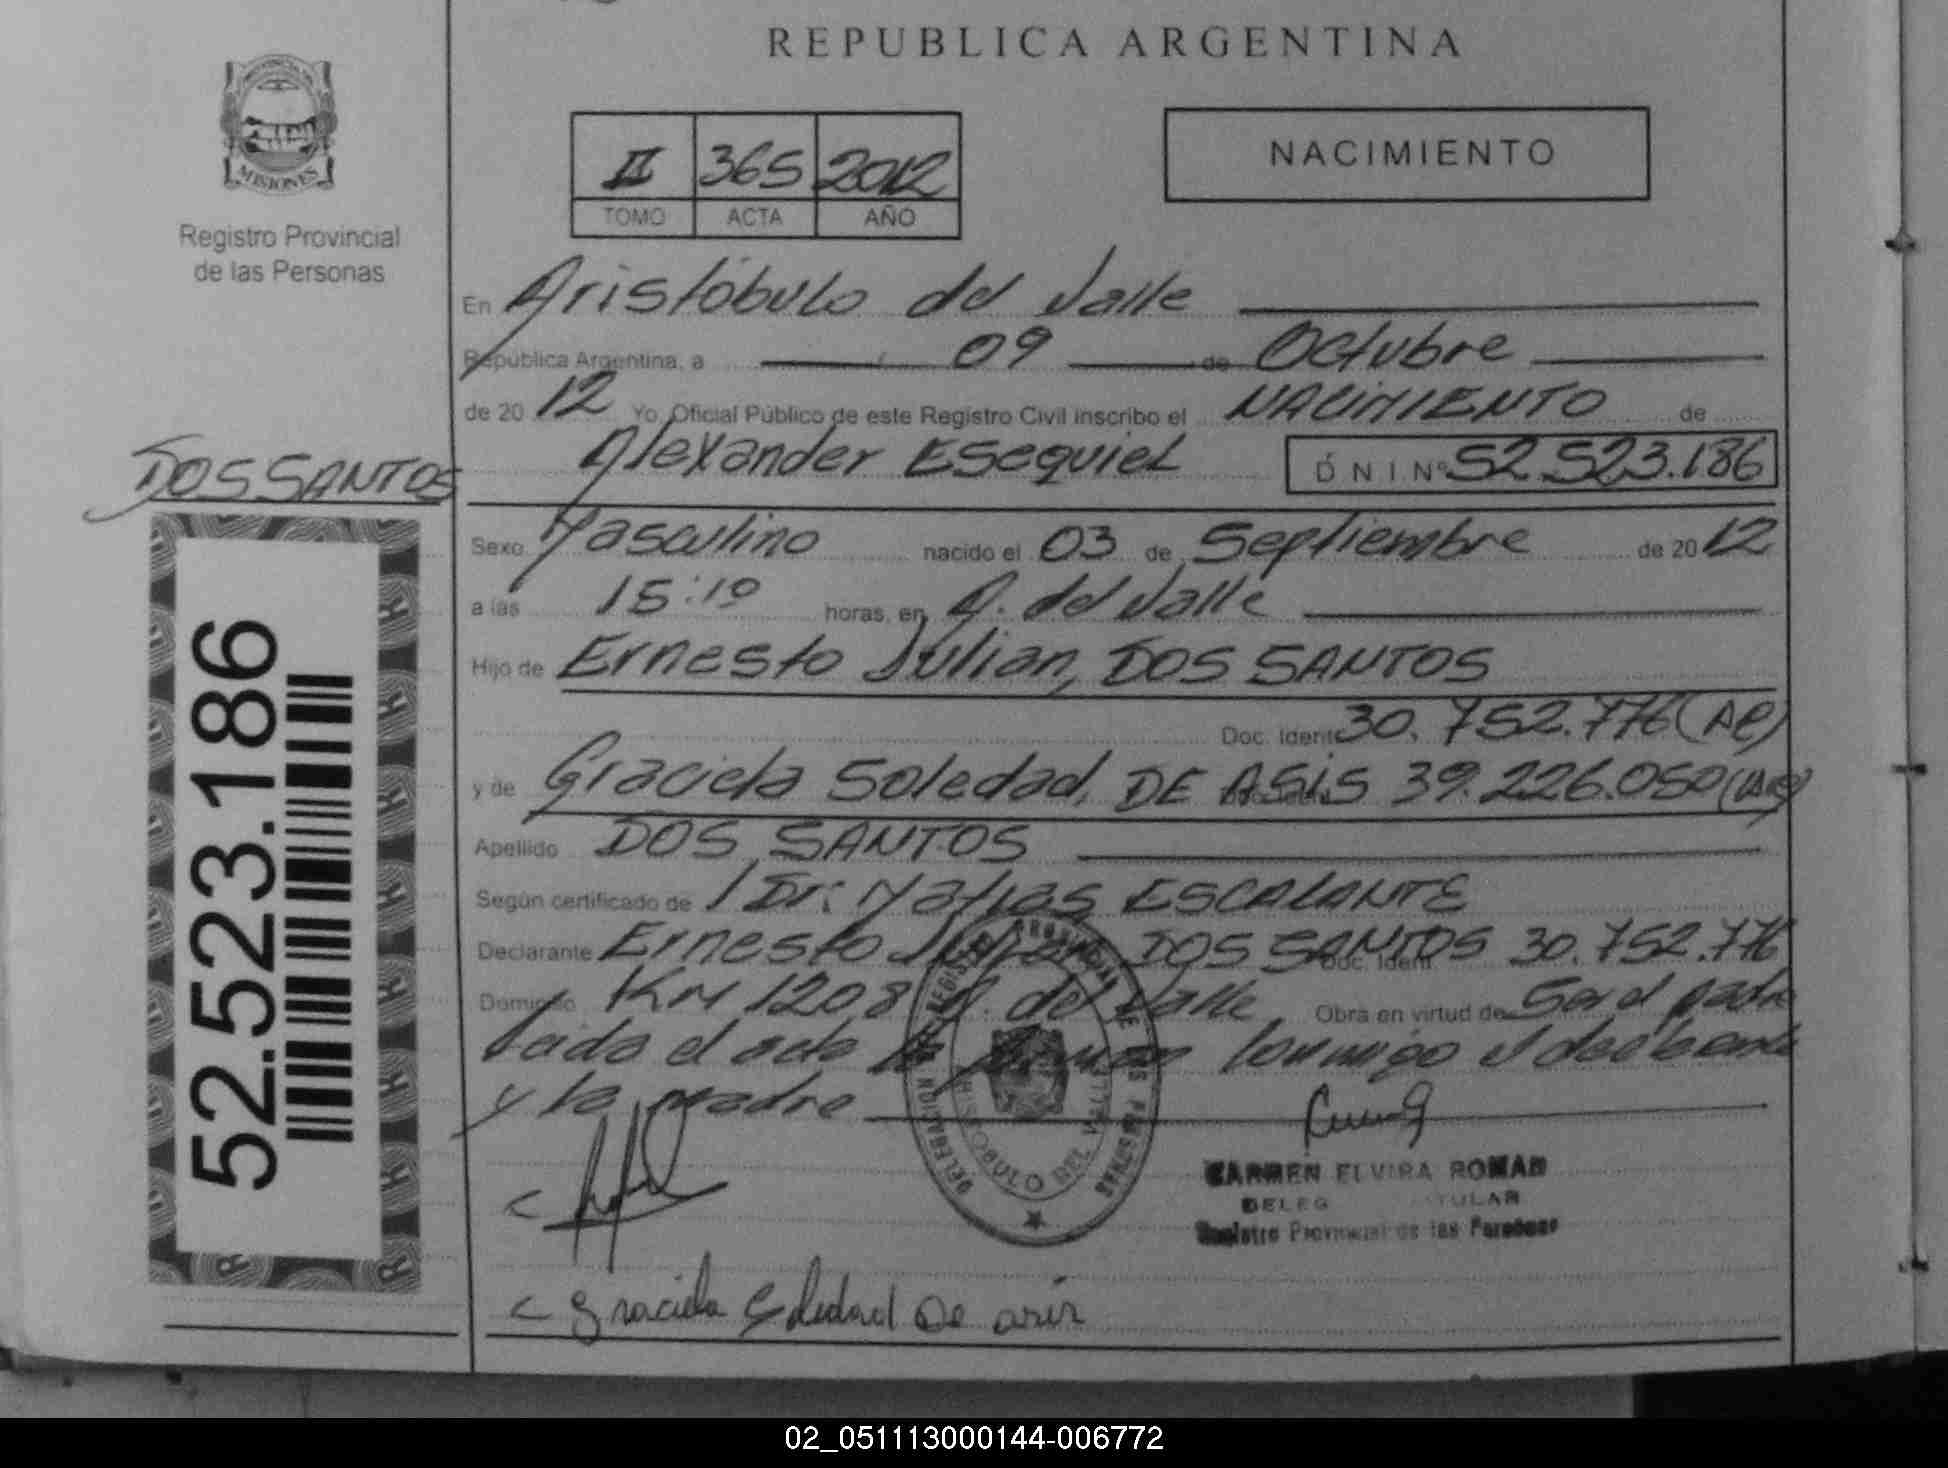 REPUBLICA ARGENTINA
PROVINCIA DE
MISIONES
Registro Provincial
de las Personas
II 365 2012
TOMO ACTA AÑO
NACIMIENTO
En Aristóbulo del Valle
República Argentina, a 09 de Octubre
de 20 12 Yo, Oficial Público de este Registro Civil inscribo el NACIMIENTO de
Alexander ESequiel D N I Nº 52.523.186
DOS SANTOS
Sexo Masculino nacido el 03 de Septiembre de 20 12
a las 15:10 horas, en A. del Valle
Hijo de Ernesto Julian, DOS SANTOS
Doc. Ident. 30.752.776 (Ar)
y de Graciela Soledad, DE ASIS 39.226.050 (Ar)
Apellido DOS SANTOS
Según certificado de Dr: Matias ESCALANTE
Declarante Ernesto Julian DOS SANTOS Doc. Ident. 30.752.776
Domicilio KM 1208 A. del Valle Obra en virtud de Ser el padre
Leida el acta la firman conmigo el declarante
y la madre
52.523.186
DELEGACION DEL REGISTRO PROVINCIAL DE LAS PERSONAS
ARISTOBULO DEL VALLE
CARMEN ELVIRA ROMAN
DELEG TULAR
Registro Provincial de las Personas
Graciela Soledad De asis
02_051113000144-006772